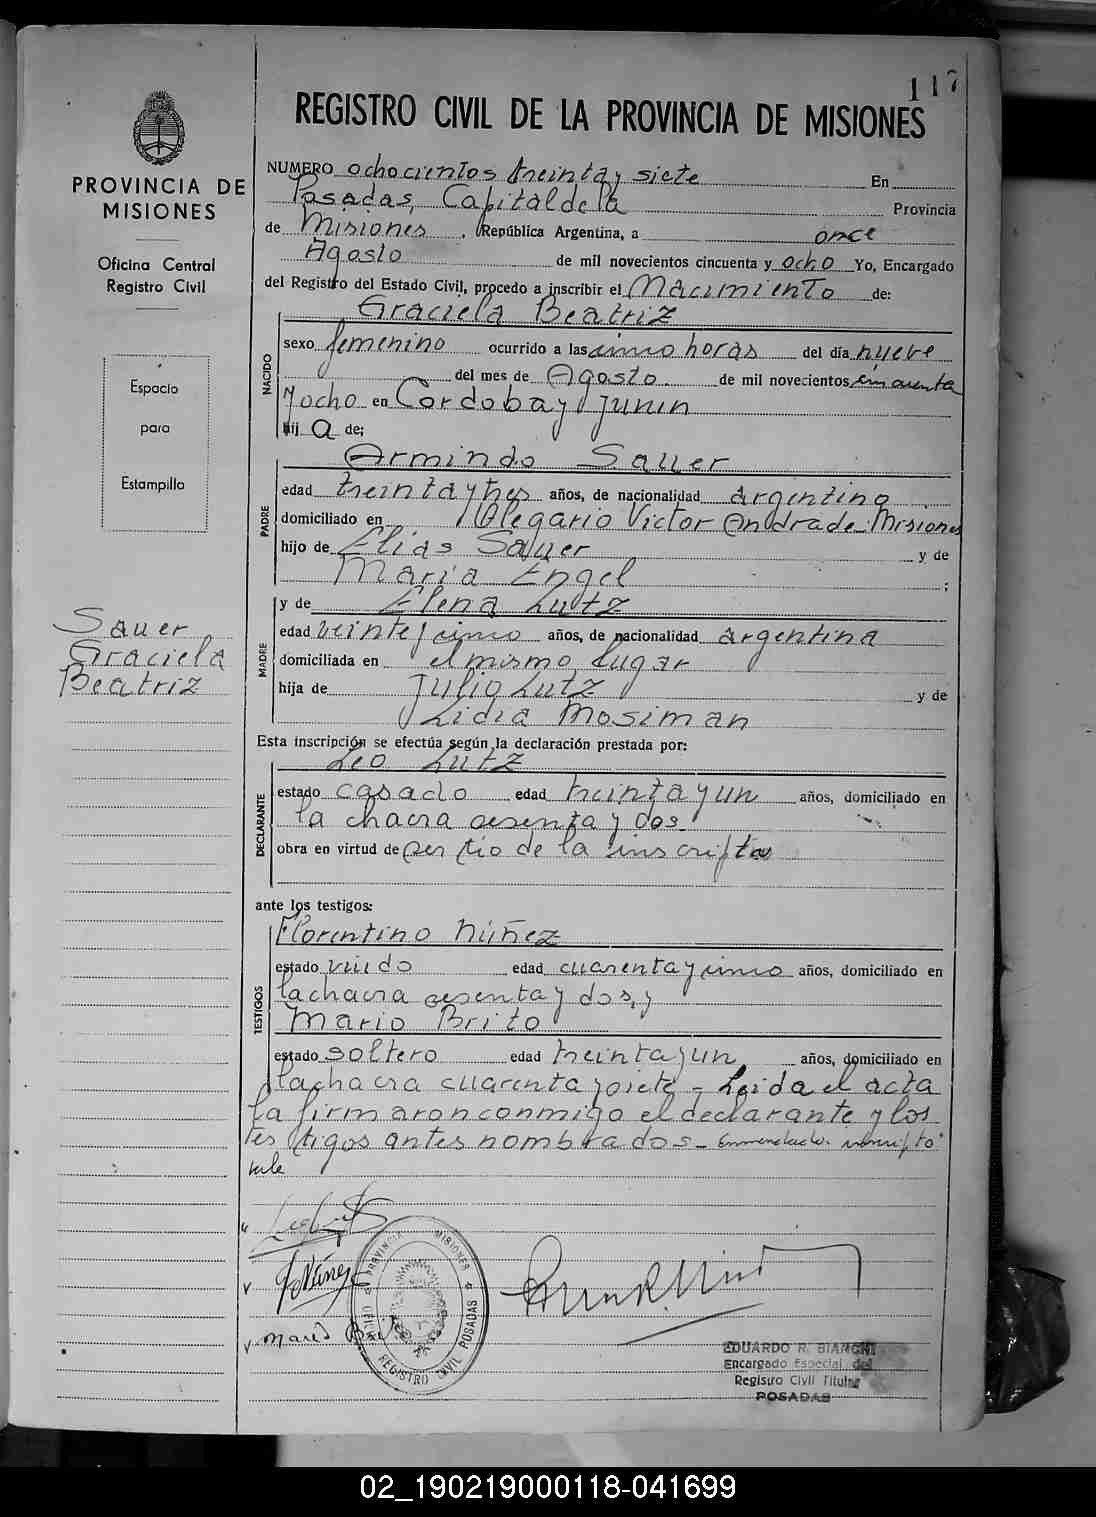 117
REGISTRO CIVIL DE LA PROVINCIA DE MISIONES
PROVINCIA DE
MISIONES
Oficina Central
Registro Civil
Espacio
para
Estampilla
Sauer
Graciela
Beatriz
NUMERO ochocientos treinta y siete En
Posadas, Capital de la Provincia
de Misiones, República Argentina, a once
Agosto de mil novecientos cincuenta y ocho Yo, Encargado
del Registro del Estado Civil, procedo a inscribir el Nacimiento de:
Graciela Beatriz
NACIDO
sexo femenino ocurrido a las cinco horas del día nueve
del mes de Agosto de mil novecientos cincuenta
y ocho en Cordoba y Junin
hij a de;
Armindo Sauer
PADRE
edad treinta y tres años, de nacionalidad argentino
domiciliado en Olegario Victor Andrade Misiones
hijo de Elias Sauer y de
Maria Engel ;
y de Elena Lutz
MADRE
edad veinte y cinco años, de nacionalidad argentina
domiciliada en el mismo lugar
hija de Julio Lutz y de
Lidia Mosiman
Esta inscripción se efectúa según la declaración prestada por:
Leo Lutz
DECLARANTE
estado casado edad treinta y un años, domiciliado en
la chacra sesenta y dos
obra en virtud de ser tio de la inscripta
ante los testigos:
Florentino Núñez
TESTIGOS
estado viudo edad cuarenta y cinco años, domiciliado en
la chacra sesenta y dos, y
Mario Brito
estado soltero edad treinta y un años, domiciliado en
la chacra cuarenta y siete - Leida el acta
la firmaron conmigo el declarante y los
testigos antes nombrados - Enmendado: inscripto:
vale
Leo Lutz
F Núñez
Mario Brito
PROVINCIA MISIONES
REGISTRO CIVIL POSADAS
EDUARDO R. BIANCHI
Encargado Especial del
Registro Civil Titular
POSADAS
02_190219000118-041699